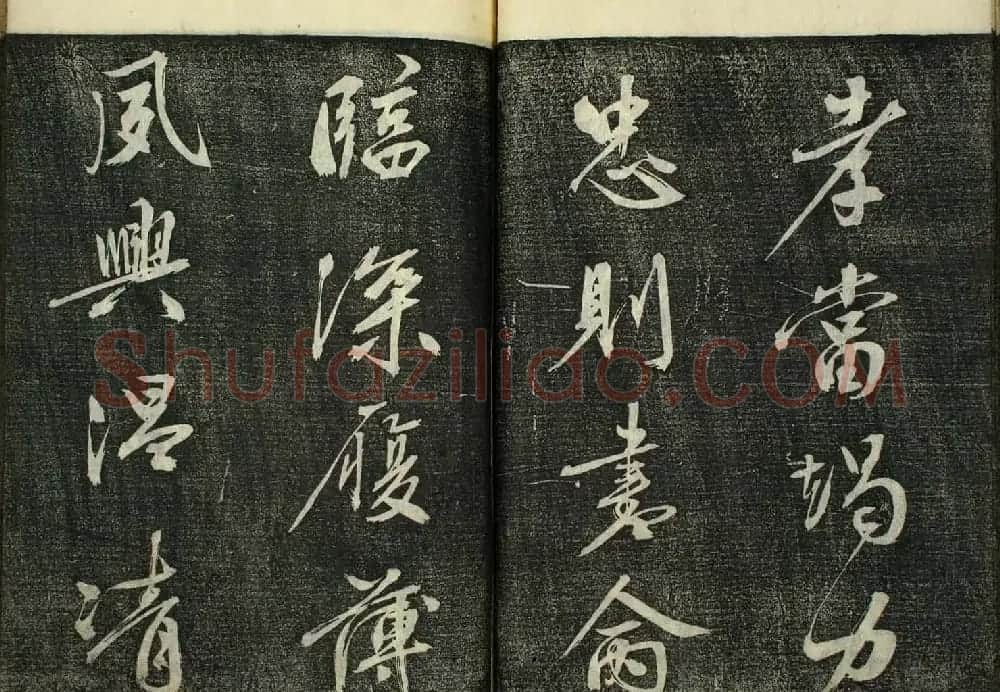 孝當竭力
忠則盡命
臨深履薄
夙興温凊
Shufaziliao.COM